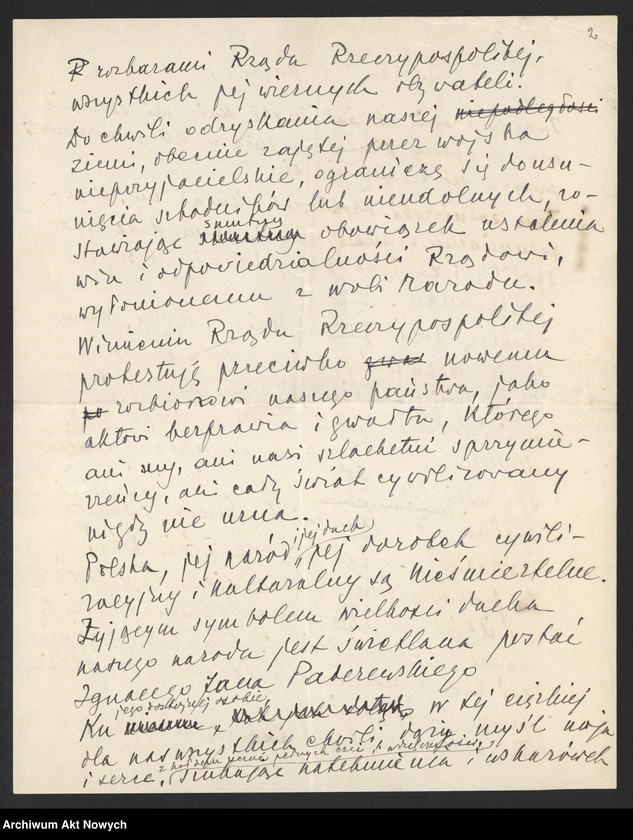 2
rozkazami Rządu Rzeczypospolitej,
wszystkich jej wiernych obywateli.
Do chwili odzyskania naszej niepodległości
ziemi, obecnie zajętej przez wojska
nieprzyjacielskie, ograniczę się do usu-
nięcia szkodników lub nieudolnych, zo-
stawiając smutny obowiązek ustalenia
win i odpowiedzialności Rządowi,
wyłonionemu z woli Narodu.
W imieniu Rządu Rzeczypospolitej
protestuję przeciwko nowemu
rozbiorowi naszego państwa, jako
aktowi bezprawia i gwałtu, którego
ani my, ani nasi szlachetni sprzymie-
rzeńcy, ani cały świat cywilizowany
nigdy nie uzna.
i jej duch
Polska, jej naród, jej dorobek cywili-
zacyjny i kulturalny są nieśmiertelne.
Żyjącym symbolem wielkości ducha
naszego narodu jest świetlana postać
Ignacego Jana Paderewskiego
jego dostojnej osobie
Ku w tej ciężkiej
dla nas wszystkich chwili, dąży myśl moja
z hołdem czci i wdzięczności
i serce, szukając natchnienia i wskazówek
Archiwum Akt Nowych